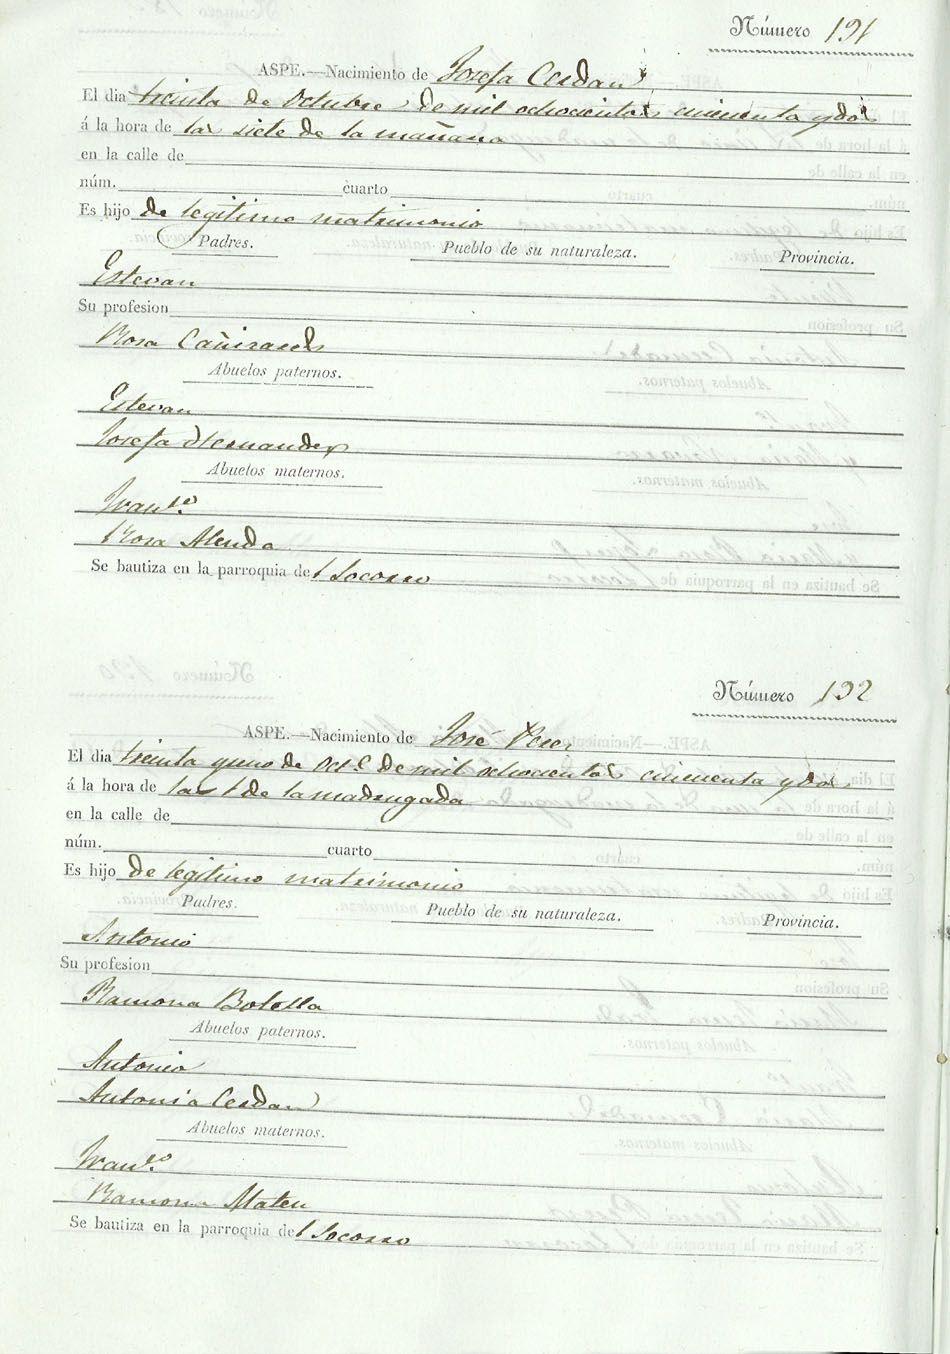 Número 191
ASPE.—Nacimiento de Josefa Cerdan
El dia treinta de Octubre de mil ochocientos cincuenta y dos
á la hora de las siete de la mañana
en la calle de
núm. cuarto
Es hijo de legitimo matrimonio
Padres. Pueblo de su naturaleza. Provincia.
Estevan
Su profesion
Rosa Cañizares
Abuelos paternos.
Estevan
Josefa Hernandez
Abuelos maternos.
Franco.
Rosa Alenda
Se bautiza en la parroquia del Socorro
Número 192
ASPE.—Nacimiento de José Perez
El dia treinta y uno de Oct.e de mil ochocientos cincuenta y dos
á la hora de la 1 de la madrugada
en la calle de
núm. cuarto
Es hijo de legitimo matrimonio
Padres. Pueblo de su naturaleza. Provincia.
Antonio
Su profesion
Ramona Botella
Abuelos paternos.
Antonio
Antonia Cerdan
Abuelos maternos.
Franco.
Ramona Mateu
Se bautiza en la parroquia del Socorro